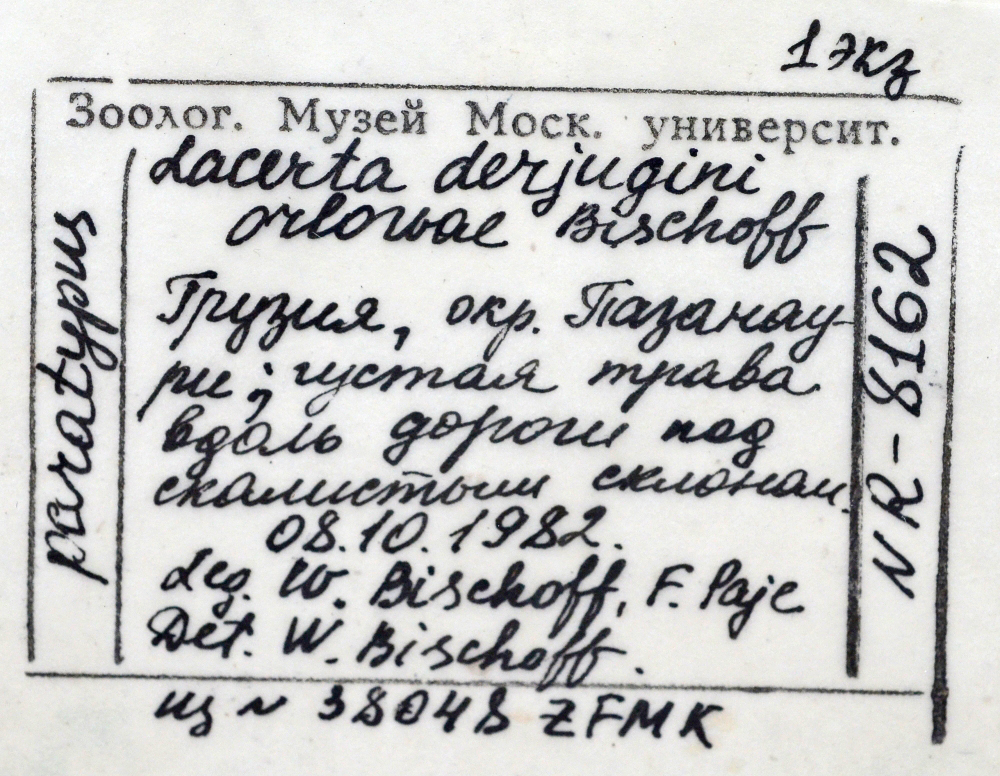 1 экз
Зоолог. Музей Моск. университ.
Lacerta derjugini
orlowae Bischoff
Грузия, окр. Пазанау-
ри; густая трава
вдоль дороги под
скалистыми склонам.
08.10.1982.
Leg. W. Bischoff, F. Paje
Det. W. Bischoff.
из N 38048 ZFMK
paratypus
NR-8162